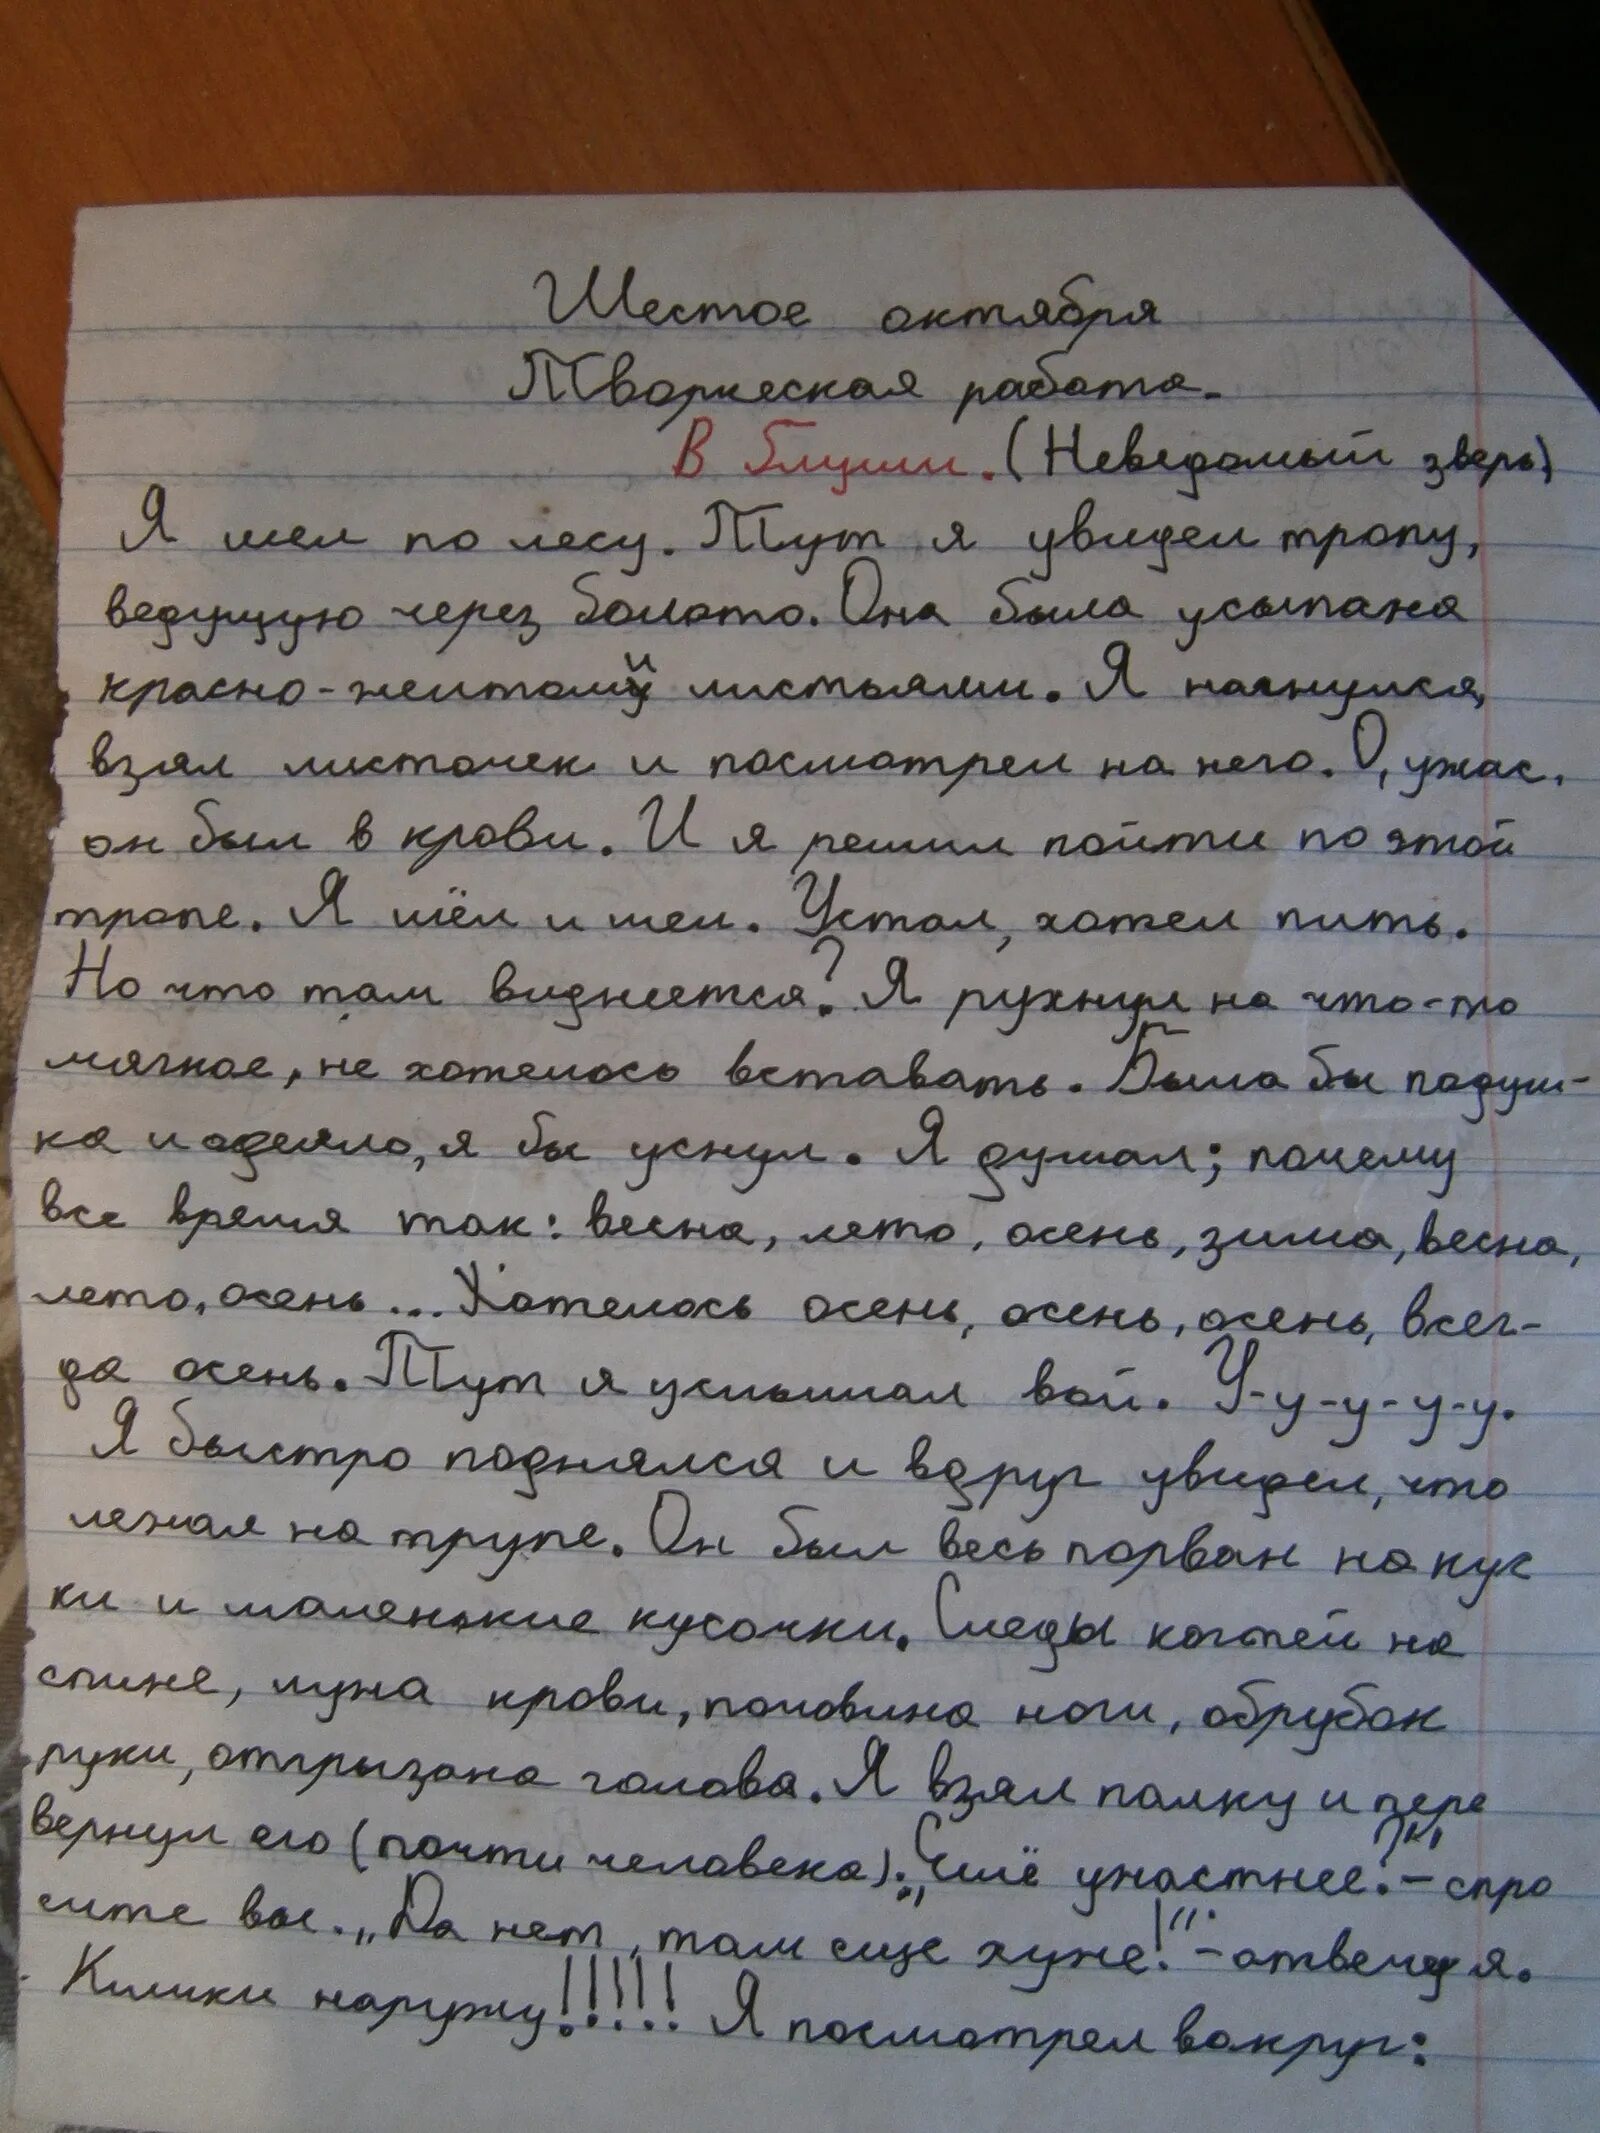 Шестое октября
Творческая работа.
В глуши. (Неведомый зверь)
Я шел по лесу. Тут я увидел тропу,
ведущую через болото. Она была усыпана
красно-желтыми листьями. Я нагнулся,
взял листочек и посмотрел на него. О, ужас,
он был в крови. И я решил пойти по этой
тропе. Я шёл и шел. Устал, хотел пить.
Но что там виднеется? Я рухнул на что-то
мягкое, не хотелось вставать. Была бы подуш-
ка и одеяло, я бы уснул. Я думал; почему
все время так: весна, лето, осень, зима, весна,
лето, осень... Хотелось осень, осень, осень, всег-
да осень. Тут я услышал вой. У-у-у-у-у.
Я быстро поднялся и вдруг увидел, что
лежал на трупе. Он был весь порван на кус
ки и маленькие кусочки. Следы когтей на
спине, лужа крови, половина ноги, обрубок
руки, отгрызана голова. Я взял палку и пере
вернул его (почти человека). „Ешё ужастнее?" - спро
сите вы. „Да нет, там еще хуже!" - отвечу я.
Кишки наружу!!!!! Я посмотрел вокруг: